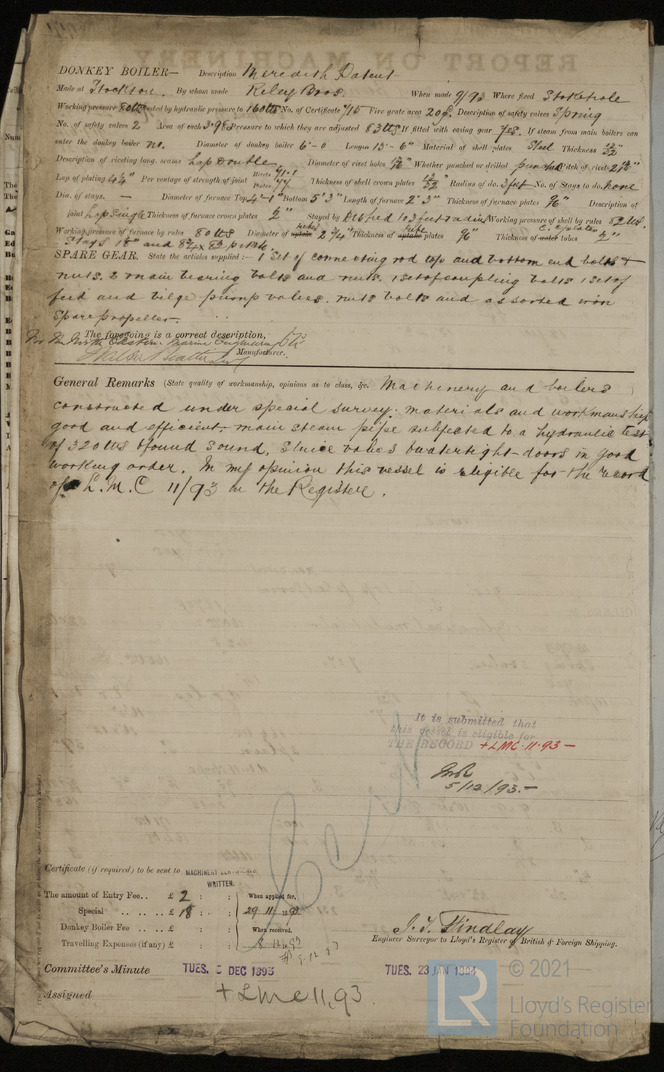 DONKEY BOILER— Description Meredith Patent
Made at Stockton. By whom made Riley Bros. When made 9/93 Where fixed Stokehole
Working pressure 80lbs tested by hydraulic pressure to 160lbs No. of Certificate 715 Fire grate area 20 Description of safety valves Spring
No. of safety valves 2 Area of each 3.98 Pressure to which they are adjusted 83lbs If fitted with easing gear Yes. If steam from main boilers can
enter the donkey boiler no. Diameter of donkey boiler 6'-0 Length 13'-6" Material of shell plates Steel Thickness
Description of riveting long. seams Lap Double Diameter of rivet holes Whether punched or drilled punched Pitch of rivets
Lap of plating Per centage of strength of joint Rivets Plates 74 Thickness of shell crown plates Radius of do. 3 feet No. of Stays to do. None
Dia. of stays. — Diameter of furnace Top 4'-1" Bottom 5'3" Length of furnace 2'3" Thickness of furnace plates Description of
joint Lap Single Thickness of furnace crown plates Stayed by Dished to 3 feet radius Working pressure of shell by rules 82lbs.
Working pressure of furnace by rules 80lbs Diameter of plates 2 3/4" Thickness of plates Thickness of water tubes
Stays 1 8" and
SPARE GEAR. State the articles supplied:— 1 set of connecting rod top and bottom end bolts &
nuts. 2 main bearing bolts and nuts. 1 set of coupling bolts 1 set of
feed and bilge pump valves. nuts bolts and assorted iron
Spare propeller.
The foregoing is a correct description,
For the North Eastern Marine Engineering Co Ld
Manufacturer.
General Remarks (State quality of workmanship, opinions as to class, &c. Machinery and boilers
constructed under special survey. materials and workmanship
good and efficient. main steam pipe subjected to a hydraulic test
of 320 lbs & found sound. Sluice valves & watertight doors in good
working order. In my opinion this vessel is eligible for the record
of L.M.C 11/93 in the Register.
It is submitted that
this vessel is eligible for
THE RECORD +LMC 11.93 —
5/12/93.—
Certificate (if required) to be sent to MACHINERY CERTIFICATE
WRITTEN.
The amount of Entry Fee.. £ 2 : : When applied for,
Special .. .. .. .. £ 18 : : 29 11 1893
Donkey Boiler Fee .. .. £ : : When received,
Travelling Expenses (if any) £ : : 8.12.93
J. T. Findlay
Engineer Surveyor to Lloyd's Register of British & Foreign Shipping.
Committee's Minute TUES. 5 DEC 1893 TUES. 23 JAN 1894
Assigned + LMC 11,93.
© 2021
LR Lloyd's Register
Foundation